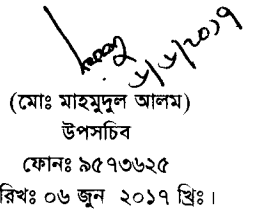 ৬/৬/২০১৭
(মোঃ মাহমুদুল আলম)
উপসচিব
ফোনঃ ৯৫৭৩৬২৫
রিখঃ ০৬ জুন ২০১৭ খ্রিঃ।